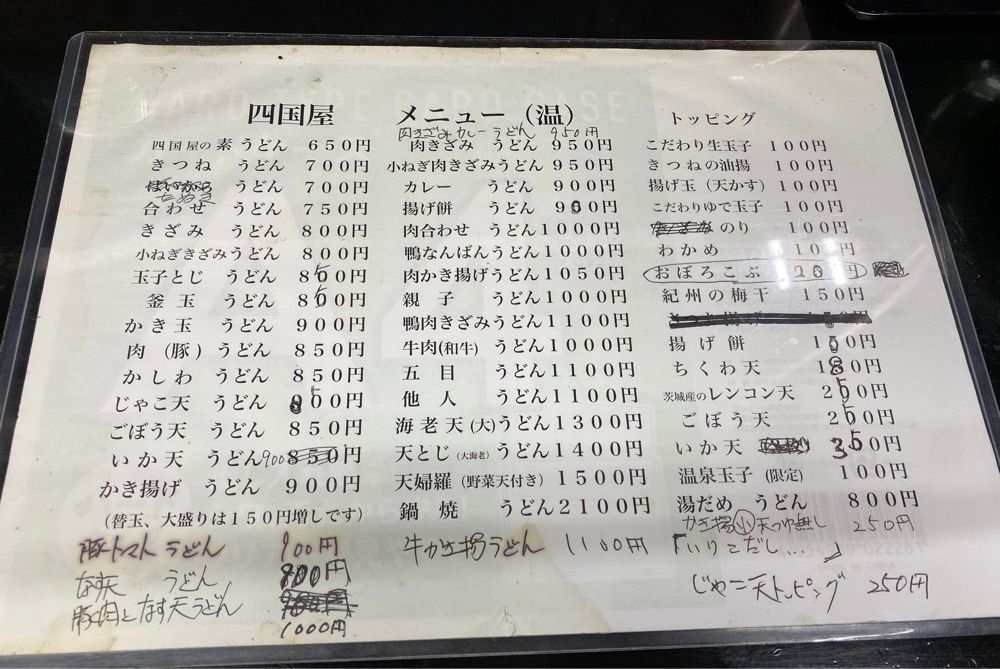 四国屋 メニュー（温）
四国屋の 素 うどん 650円
きつね うどん 700円
たぬき うどん 700円
合わせ うどん 750円
きざみ うどん 800円
小ねぎきざみうどん 800円
玉子とじ うどん 850円
釜玉 うどん 850円
かき玉 うどん 900円
肉（豚）うどん 850円
かしわ うどん 850円
じゃこ天 うどん 900円
ごぼう天 うどん 850円
いか天 うどん 900
かき揚げ うどん 900円
（替玉、大盛りは150円増しです）
豚トマト うどん 900円
なす天 うどん 900円
豚肉となす天うどん
1000円
肉きざみカレーうどん 950円
肉きざみ うどん 950円
小ねぎ肉きざみうどん 950円
カレー うどん 900円
揚げ餅 うどん 900円
肉合わせ うどん 1000円
鴨なんばんうどん 1000円
肉かき揚げうどん 1050円
親子 うどん 1000円
鴨肉きざみうどん 1100円
牛肉(和牛) うどん 1000円
五目 うどん 1100円
他人 うどん 1100円
海老天(大)うどん 1300円
天とじ(大海老)うどん 1400円
天婦羅（野菜天付き）1500円
鍋焼 うどん 2100円
牛かき揚うどん 1100円
トッピング
こだわり生玉子 100円
きつねの油揚 100円
揚げ玉（天かす）100円
こだわりゆで玉子 100円
のり 100円
わかめ 100円
おぼろこぶ
紀州の梅干 150円
揚げ餅
ちくわ天
茨城産のレンコン天 250円
ごぼう天 250円
いか天 350円
温泉玉子（限定）100円
湯だめ うどん 800円
かき揚小天つゆ無し 250円
「いりこだし…」
じゃこ天トッピング 250円